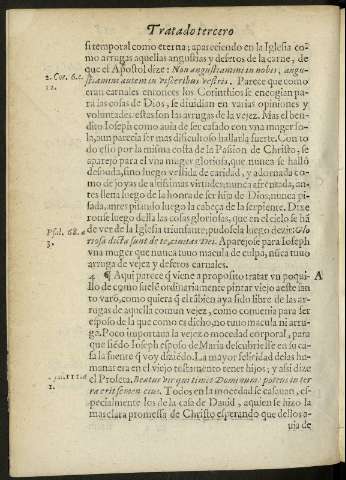 Tratado tercero
si temporal como eterna; apareciendo en la Iglesia co-
mo arrugas aquellas angustias y defetos de la carne, de
2. Cor. 6. c.
12.
que el Apostol dize: Non angustiamini in nobis, angu-
stiamini autem in visceribus vestris. Parece que como
eran carnales entonces los Corinthios se encogian pa-
ra las cosas de Dios, se diuidian en varias opiniones y
voluntades, estas son las arrugas de la vejez. Mas el ben-
dito Ioseph como auia de ser casado con vna muger so-
la, aun parecia ser mas dificultoso hallarla fuerte. Con to
do esso por la misma costa de la Passion de Christo, se
aparejo para el vna muger gloriosa, que nunca se halló
desnuda, sino luego vestida de caridad, y adornada co-
mo de joyas de altissimas virtudes; nunca afrentada, an-
tes llena luego de la honra de ser hija de Dios; nunca pi-
sada, antes pisando luego la cabeça de la serpiente. Dixe
ronse luego della las cosas gloriosas, que en el cielo se hã
Psal. 68. a
3.
de ver de la Iglesia triunfante; pudosela luego dezir: Glo
riosa dicta sunt de te, ciuitas Dei. Aparejose para Ioseph
vna muger que nunca tuuo macula de culpa, nũca tuuo
arruga de vejez y defetos carnales.
4 ¶ Aqui parece q̃ viene a proposito tratar vn poqui-
A
llo de como suelẽ ordinariamente pintar viejo a este san
to varõ, como quiera q̃ el tãbien aya sido libre de las ar-
rugas de aquella comun vejez, como conuenia para ser
esposo de la que como es dicho, no tuuo macula ni arru-
ga. Poco importara la vejez o mocedad corporal, para
que siẽdo Ioseph esposo de Maria descubriesse en su ca-
sa la fuente q̃ voy diziẽdo. La mayor felicidad de las hu-
manas era en el viejo testamento tener hijos; y assi dize
1.
el Profeta. Beatus vir qui timet Dominum: potens in ter
ra erit semen eius. Todos en la mocedad se casauan, es-
pecialmente los de la casa de Dauid, aquien se hizo la
mas clara promessa de Christo esperando que dellos a-
uia de